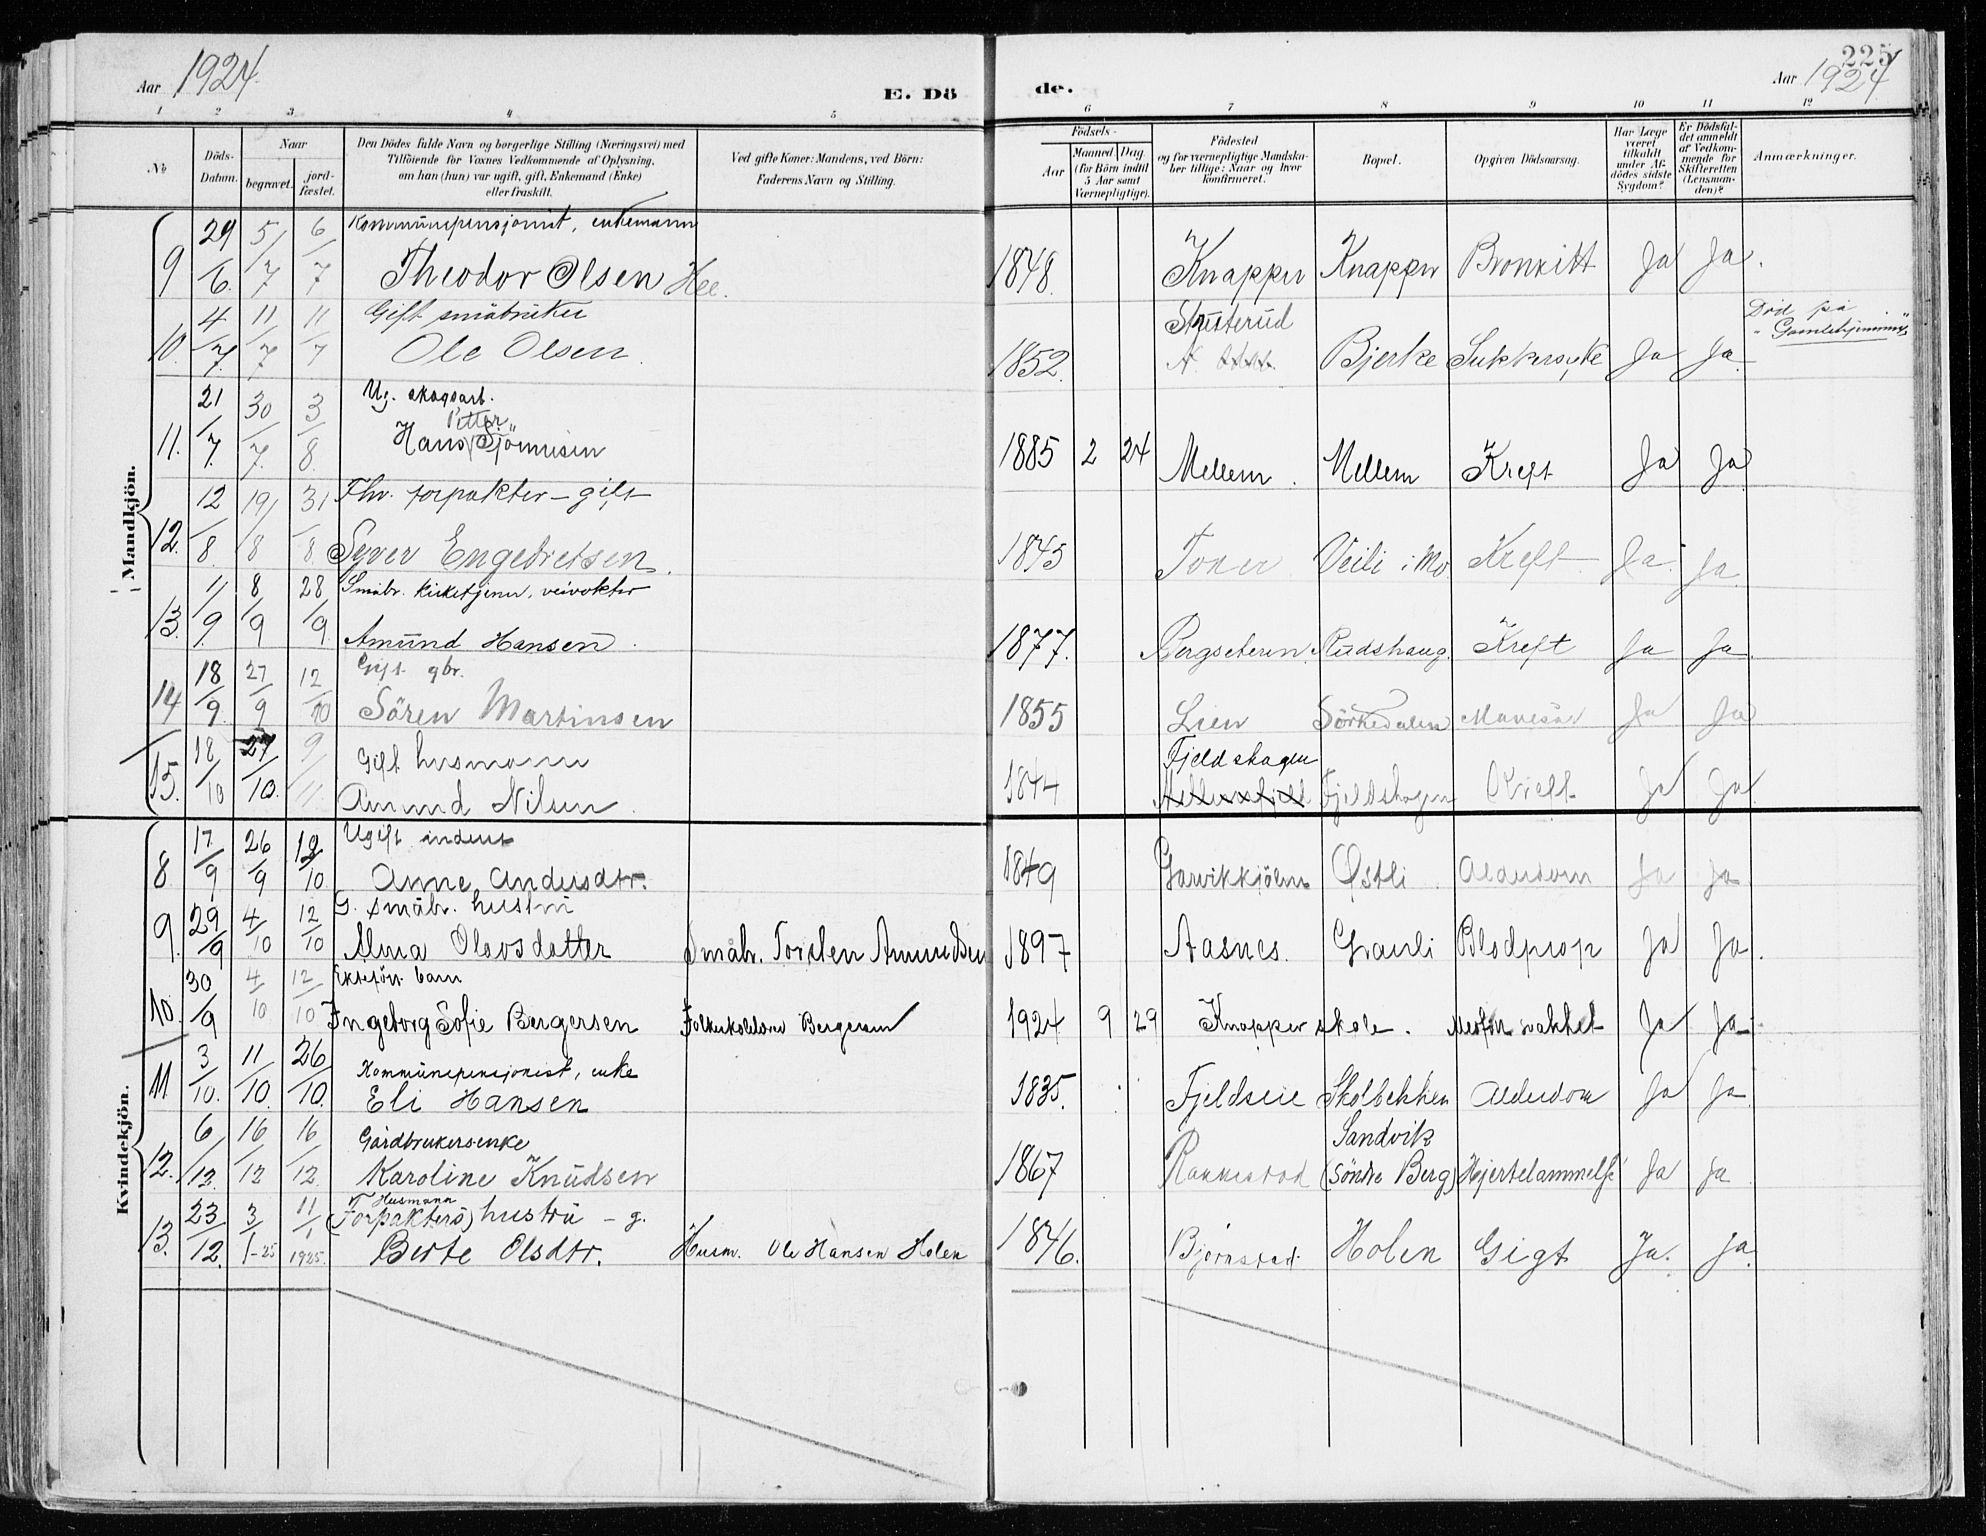 Aar 1924.
E. Dö
de.
225
Aar 1924
1 2 3 4 5 6 7 8 9 10 11 12
No.
Döds-Datum.
Naar
begravet.
jord-fæstet.
Den Dödes fulde Navn og borgerlige Stilling (Næringsvei) med
Tilföiende for Voxnes Vedkommende af Oplysning,
om han (hun) var ugift, gift, Enkemand (Enke)
eller fraskilt.
Ved gifte Koner: Mandens, ved Börn:
Faderens Navn og Stilling.
Födsels-
Aar
Maaned. Dag
(for Börn indtil
5 Aar samt
Værnepligtige).
Födested
og for værnepligtige Mandska-
ber tillige: Naar og hvor
konfirmeret.
Bopæl.
Opgiven Dödsaarsag.
Har Læge
været
tilkaldt
under Af-
dödes sidste
Sygdom?
Er Dödsfal-
det anmeldt
af Vedkom-
mende for
Skifteretten
(Lensman-
den)?
Anmærkninger.
Mandkjön.
Kommunepensjonist, enkemann
9 29/6. 5/7 6/7 Theodor Olsen 1848. Knapper Knapper Bronkitt Ja Ja.
Gift småbruker
Stusterud
Död på
"Gamlehjemmet"
10. 4/7. 11/7 11/7 Ole Olsen. 1852. Bjerke Sukkersyke Ja Ja
Ug. skogsarb.
Petter
11. 21/7. 30/7. 3/8. Hans Sjönnesen 1885 2 24 Mellem. Mellem Kreft Ja Ja
Fhv. forpakter - gift
12. 12/8. 19/8 31/8 Syver Engebretsen. 1845 Toner Veili i Mo. Kreft Ja. Ja.
Småbr. kirketjener, veivokter
13. 1/9. 8/9 28/9. Amund Hansen. 1877. Bergseteren Rudshaug. Kreft Ja Ja.
Gift. gbr.
14 18/9. 27/9 12/10 Sören Martinsen 1855 Lien Sörkedalen Mavesår Ja Ja
Gift husmann
Fjeldskagen
15. 18/10 27/10. 9/11. Amund Nilsen. 1844 Fjeldshagen Kreft Ja Ja.
Kvindekjön.
Ugift inderst
8 17/9 26/9 12/10 Anne Andersdtr. 1849 Garvikkjölen Østli Alderdom Ja Ja
G. småbr. hustru
9. 29/9 4/10 12/10 Alma Olavsdatter Småbr. Torsten Amundsen 1897 Aasnes. Grauli Blodprop Ja Ja.
Ektefön. barn
10. 30/9 4/10 12/10 Ingeborg Sofie Bergersen Bergersen 1924 9 29 Knapper skole. Medfön svakhet Ja Ja
Kommunepensjonist, enke
11. 3/10. 11/10. 26/10. Eli Hansen 1835. Fjeldseie Skolbekken Alderdom Ja Ja
Gårdbrukersenke
Sandvik
12. 6/12. 16/12 16/12. Karoline Knudsen 1867 Rakkestad (Söndre Berg) Hjertelammelse Ja Ja
Husmann
(Forpakters) hustru - g.
13. 23/12. 3/1-25 11/1 1925. Berte Olsdtr. Husm. Ole Hansen Holen 1846. Björnstad Holen Gigt Ja. Ja.